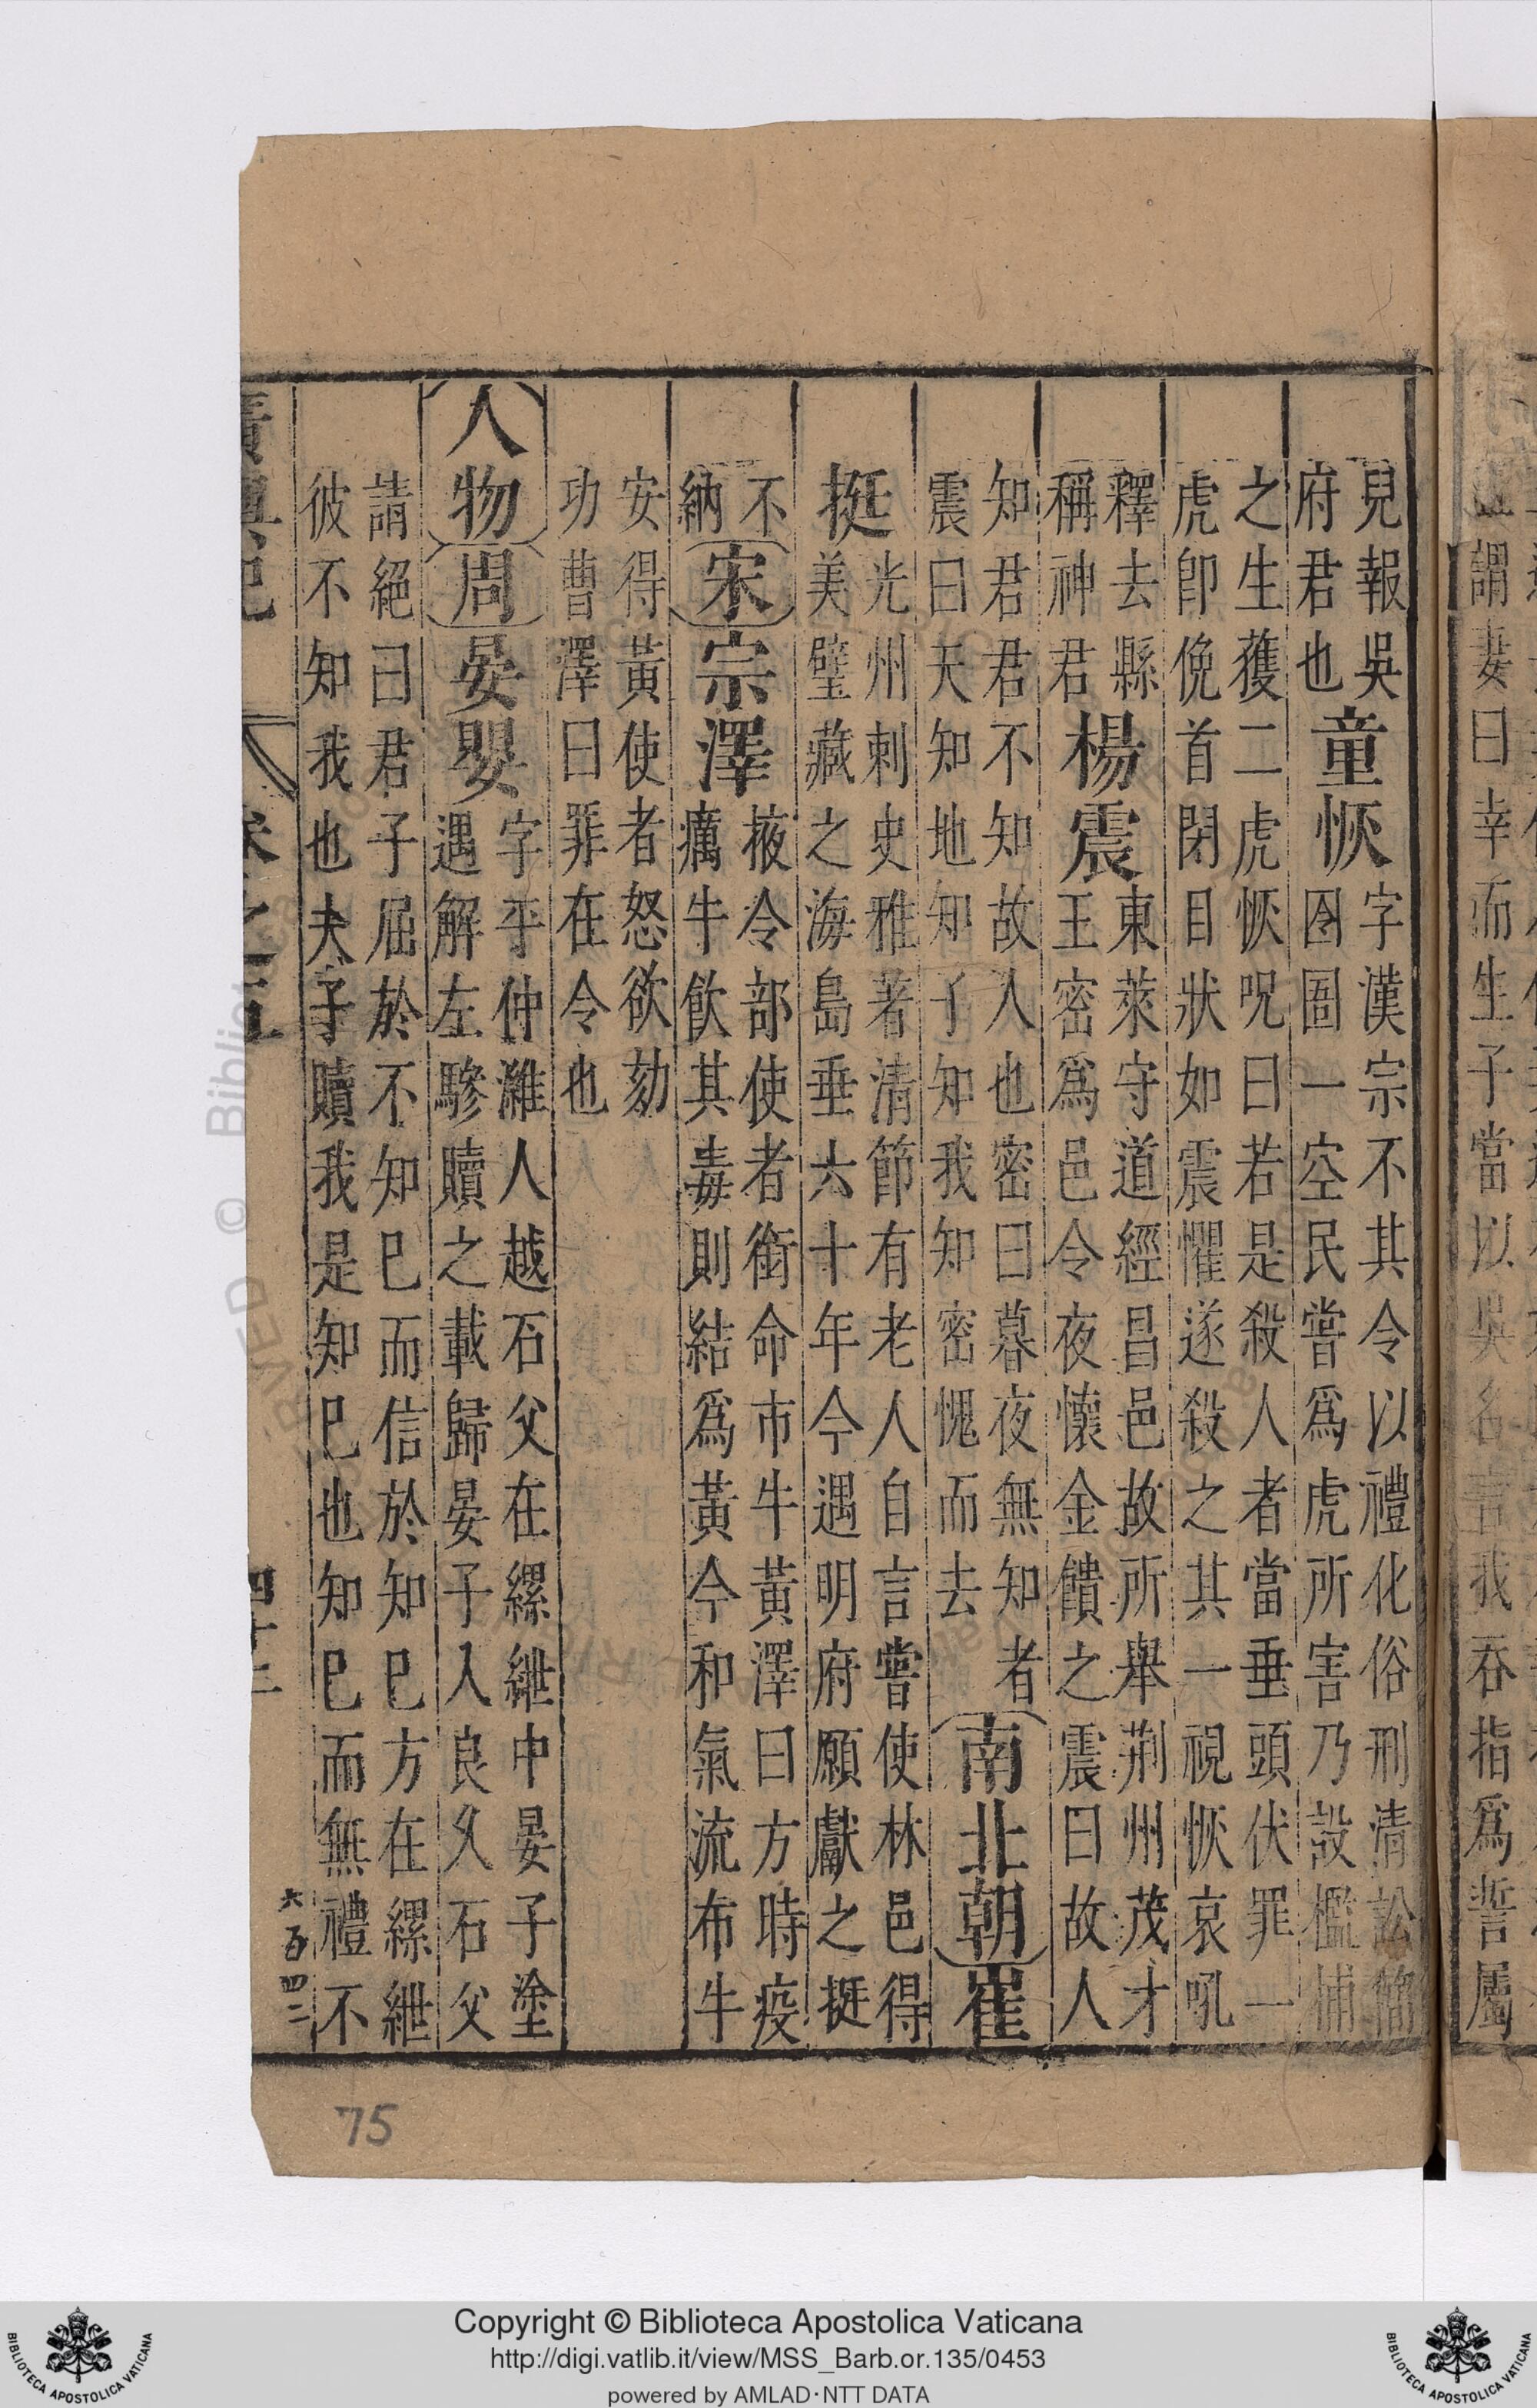 兒報吳
府君也
童恢
字漢宗不其令以禮化俗刑清訟簡
囹圄一空民嘗爲虎所害乃設檻捕
之生獲二虎恢呪曰若是殺人者當垂頭伏罪一
虎卽俛首閉目狀如震懼遂殺之其一視恢哀吼
釋去縣
稱神君
楊震
東萊守道經昌邑故所舉荆州茂才
王密爲邑令夜懷金饋之震曰故人
知君君不知故人也密曰暮夜無知者
震曰天知地知子知我知密愧而去
南北朝
崔
挺
光州刺史雅著清節有老人自言嘗使林邑得
美璧藏之海島垂六十年今遇明府願獻之挺
不
納
宋
宗澤
掖令部使者銜命市牛黃澤曰方時疫
癘牛飲其毒則結爲黃今和氣流布牛
安得黃使者怒欲劾
功曹澤曰罪在令也
人物
周
晏嬰
字平仲濰人越石父在縲紲中晏子塗
遇解左驂贖之載歸晏子入良久石父
請絕曰君子屈於不知已而信於知已方在縲紲
彼不知我也夫子贖我是知已也知已而無禮不
六百四二
75
謂妻曰幸而生子當以吳名言我吞指爲誓屬
Copyright © Biblioteca Apostolica Vaticana
http://digi.vatlib.it/view/MSS_Barb.or.135/0453
powered by AMLAD·NTT DATA
BIBLIOTECA APOSTOLICA VATICANA
BIBLIOTECA APOSTOLICA VATICANA